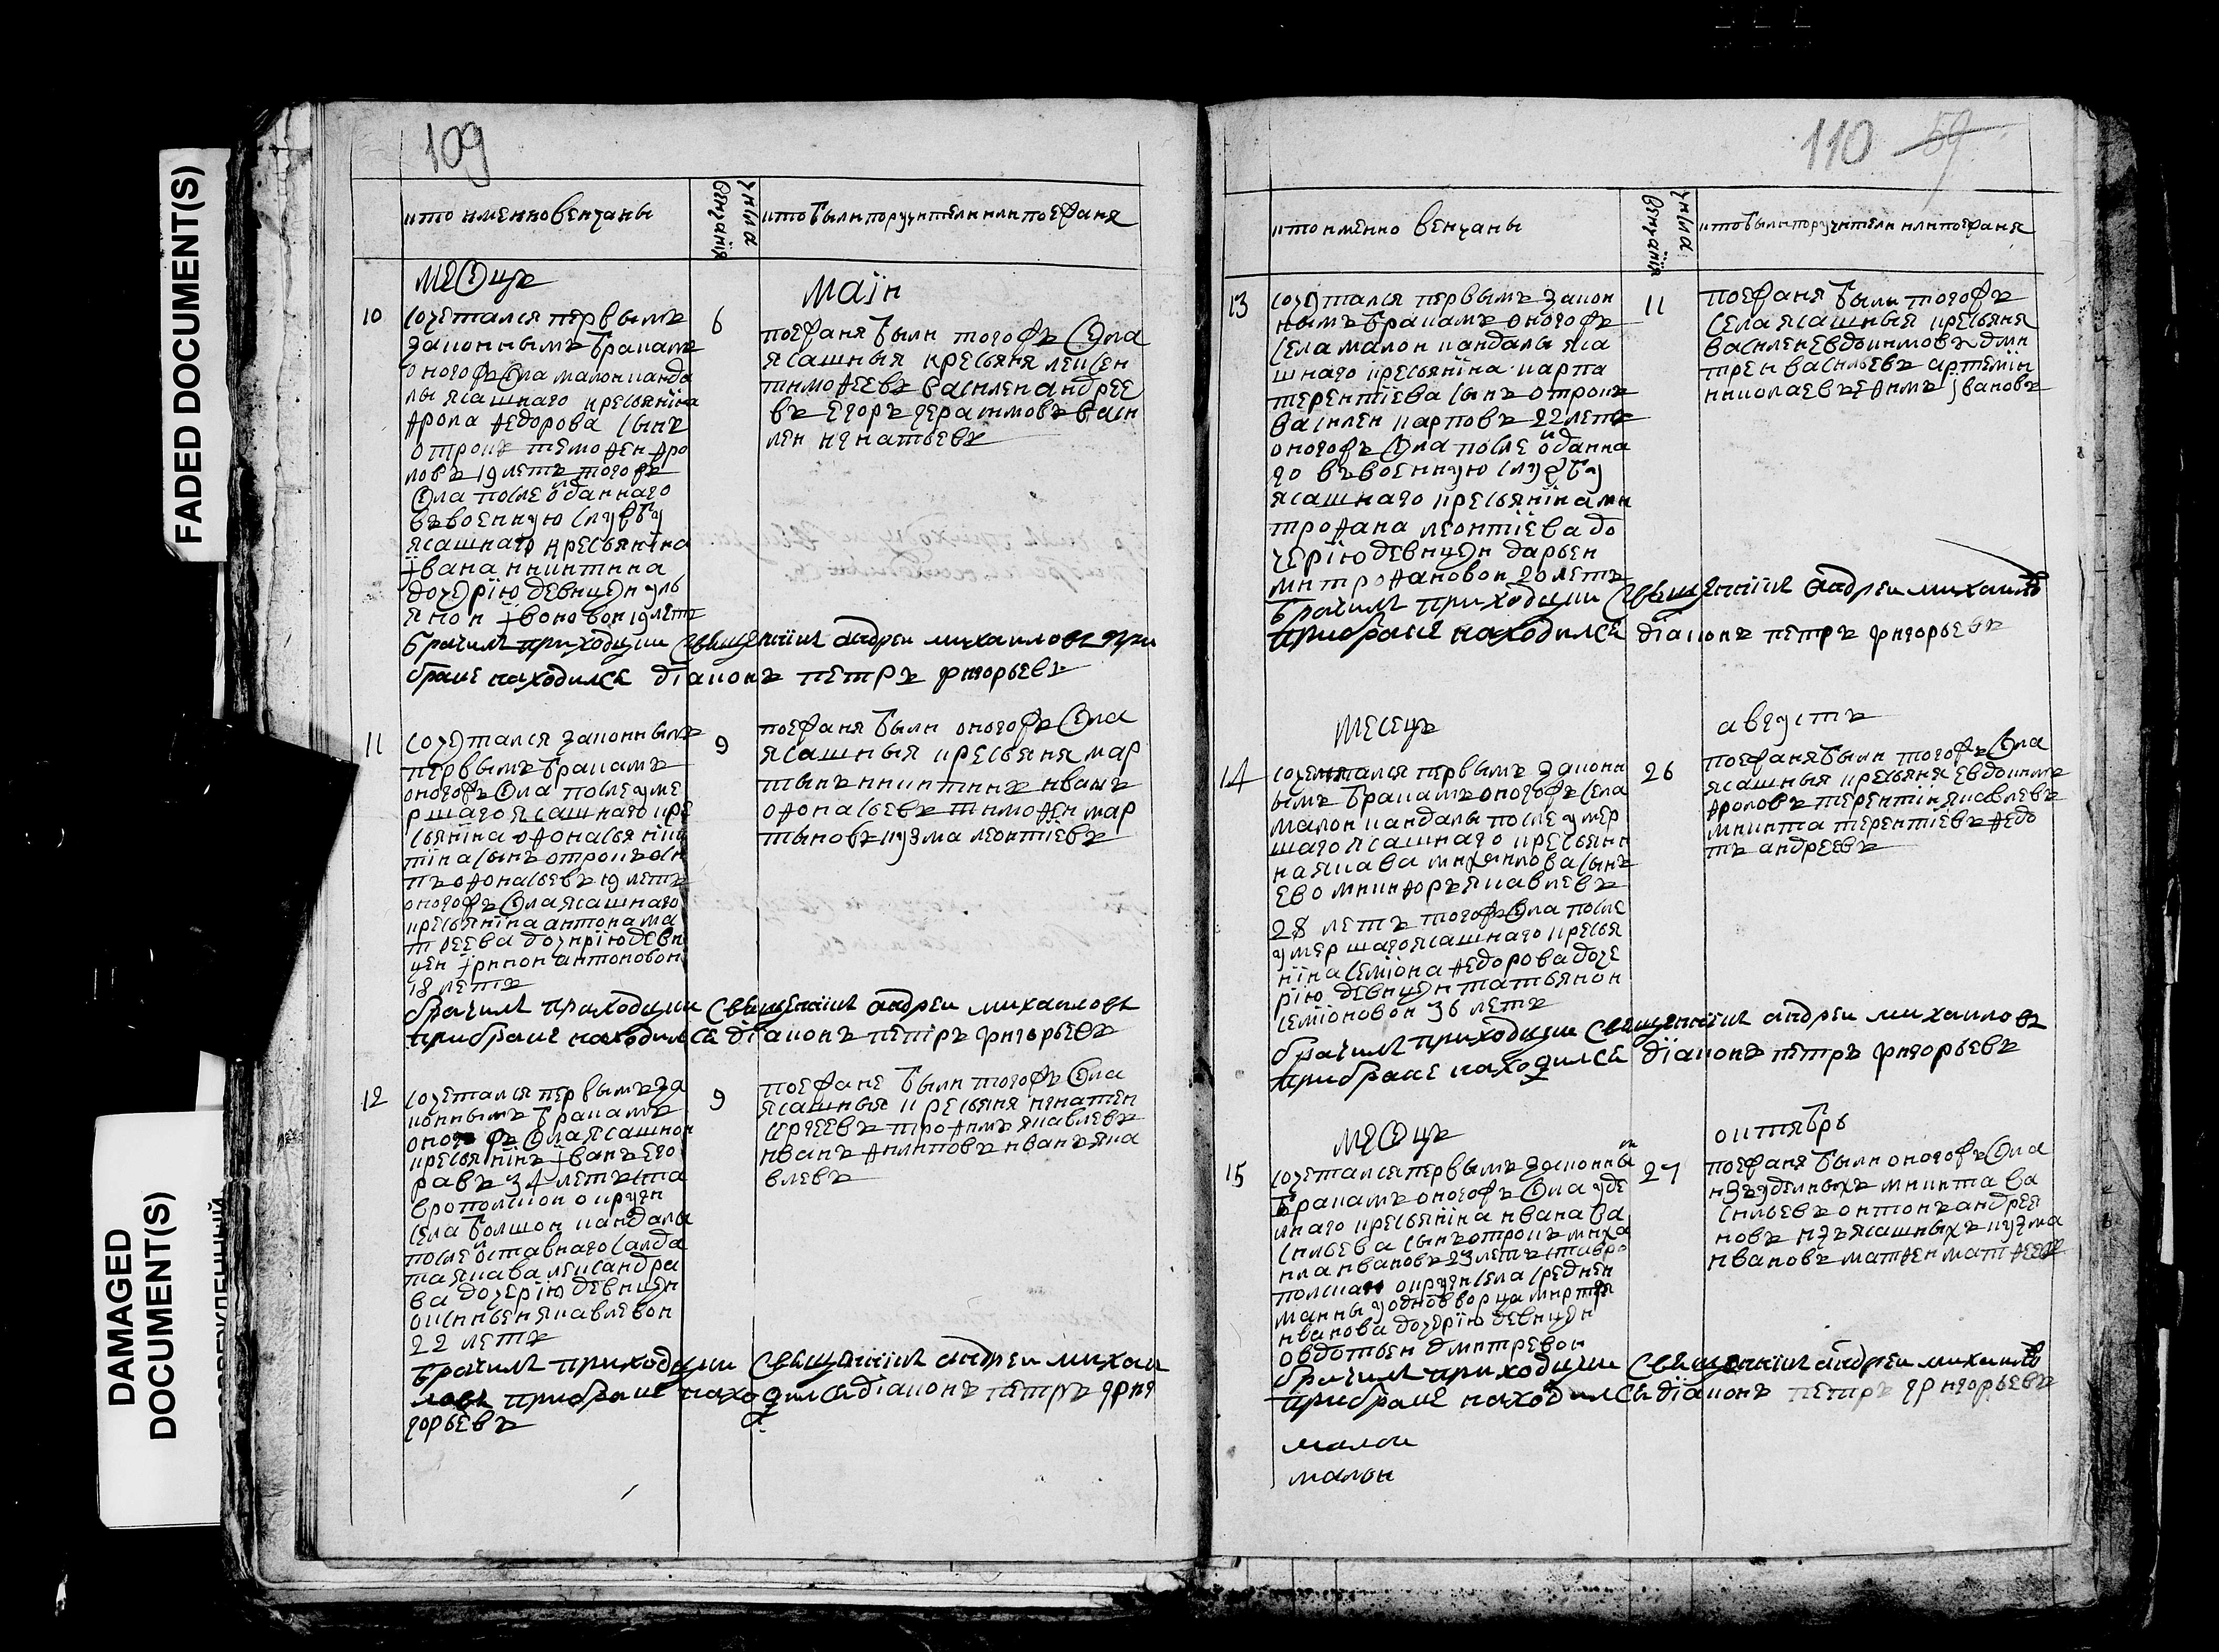 FADED DOCUMENT(S)
DAMAGED
DOCUMENT(S)
109
кто именно венчаны
числа
венчанія
кто были поручители или поежаня
месецъ
маiи
10
сочетался первымъ
законнымъ бракамъ
оногожъ села малои канда
лы ясашнаго кресьянина
фрола федорова сынъ
отрокъ темофеи фро
ловъ 19 летъ тогожъ
села после отданнаго
въ военную службу
ясашнаго кресьянина
iвана никитина
дочерiю девицеи уль
яной iвоновои 19 летъ
6
поежаня были тогожъ села
ясашныя кресьяня лексеи
тимофеевъ василеи андрее
въ егоръ герасимовъ васи
леи игнатьевъ
брачилъ приходцкии священникъ андреи михаиловъ при
браке находилсе дiаконъ петръ григорьевъ
11
сочетался законнымъ
первымъ бракамъ
оногожъ села после уме
ршаго ясашнаго кре
сьянина офонасья ники
тина сынъ отрокъ оси
пъ офонасьевъ 19 летъ
оногожъ села ясашнаго
кресьянина антона ма
тфеева дочирiю деви
цеи iринои антоновои
18 летъ
9
поежаня были оногожъ села
ясашныя кресьяня мар
тынъ никитинъ иванъ
офонасьевъ тимофеи мар
тыновъ кузма леонтiевъ
брачилъ приходцкии священникъ андреи михаиловъ
при браке находилсе дiаконъ петръ григорьевъ
12
сочетался первымъ за
коннымъ бракамъ
оногожъ села ясашнои
кресьянинъ iванъ его
равъ 34 летъ ста
вропольскои округи
села болшои кандалы
после отставнаго салда
та якава лександра
ва дочерiю девицеи
оксиньеи якавлевои
22 летъ
9
поежане были тогожъ села
ясашныя кресьяня игнатеи
сергеевъ трофимъ якавлевъ
иванъ филиповъ иванъ яка
влевъ
брачилъ приходцкии священникъ андреи михаи
ловъ при браке находилсъ дiаконъ петръ григ
горьевъ
110 59
кто именно венчаны
числа
венчанiя
кто были поручители или поежаня
13
сочетался первымъ закон
нымъ бракамъ оногожъ
села малои кандалы яса
шнаго кресьянiна карпа
терентiева сынъ отрокъ
василеи карповъ 22 летъ
оногожъ села после отданна
го въ военную службу
ясашнаго кресьянiна ми
трофана леонтiева до
черiю девицеи дарьеи
митрофановои 20 летъ
11
поежаня были тогожъ
села ясашныя кресьяня
василеи евдокимовъ дми
треи васильевъ артемiи
николаевъ ефимъ iвановъ
брачилъ приходцкии священникъ андреи михаиловъ
при браке находилсе дiаконъ петръ григорьевъ
месецъ
августъ
14
сочетался первымъ законн
ымъ бракамъ оногожъ села
малои кандалы после умер
шаго ясашнаго кресьяни
на якава михаилова сынъ
ево никифоръ якавлевъ
28 летъ тогожъ села после
умершаго ясашнаго кресья
нiна семiона федорова доче
рiю девицеи татьянои
семiоновои 36 летъ
26
поежаня были тогожъ села
ясашныя кресьяня евдокимъ
фроловъ терентiи якавлевъ
микита терентiевъ федо
тъ андреевъ
брачилъ приходцкии священникъ андреи михаиловъ
при браке находилсе дiаконъ петръ григорьевъ
месецъ
октябрь
15
сочетался первымъ законны м
бракамъ оногожъ села уде
лнаго кресьянiна ивана ва
сильева сынъ отрокъ миха
ила ивановъ 23 летъ ставро
польскаи округи села среднеи
нванова дочерiю девицеи
овдотьеи дмитревои
27
поежаня были оногожъ села
изъ удельныхъ микита ва
сильевъ онтонъ андрея
новъ изъ ясашныхъ кузма
ивановъ матфеи матфеевъ
брачилъ приходцкии священникъ андреи михаиловъ
при браке находилсъ дiаконъ петръ григорьевъ
малои
малои